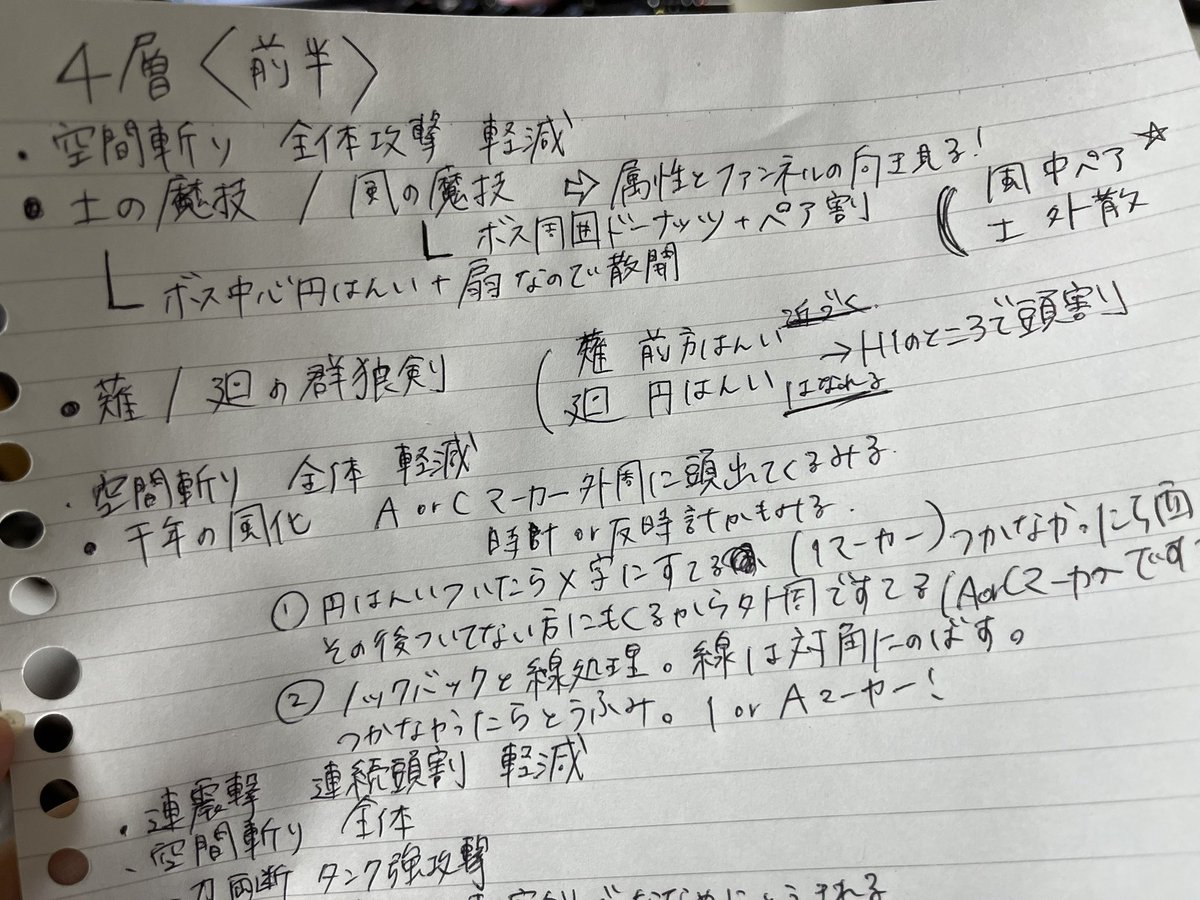 4層〈前半〉
・空間斬り 全体攻撃 軽減
・土の魔技 / 風の魔技 ⇨ 属性とファンネルの向き見る!
ボス周囲ドーナッツ+ペア割
(風 中ペア☆
土 外散
ボス中心円はんい+扇なので散開
・薙 / 廻の群狼剣
(薙 前方はんい 近づく
廻 円はんい はなれる
→H1のところで頭割り
・空間斬り 全体 軽減
・千年の風化 A or Cマーカー外周に頭出てくるみる.
時計 or 反時計かもみる.
① 円はんいついたらX字にすてる (1マーカー) つかなかったら西
その後ついてない方にもくるから外周ですてる (AorCマーカーで
② ノックバックと線処理。線は対角にのばす。
つかなかったらとうふみ。1 or Aマーカー!
・連震撃 連続頭割 軽減
・空間斬り 全体
刀両断 タンク強攻撃